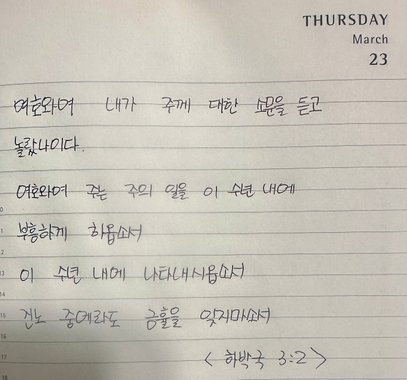 THURSDAY
March
23
여호와여 내가 주께 대한 소문을 듣고
놀랐나이다.
여호와여 주는 주의 일을 이 수년 내에
부흥하게 하옵소서
이 수년 내에 나타내시옵소서
진노 중에라도 긍휼을 잊지마소서
< 하박국 3:2 >